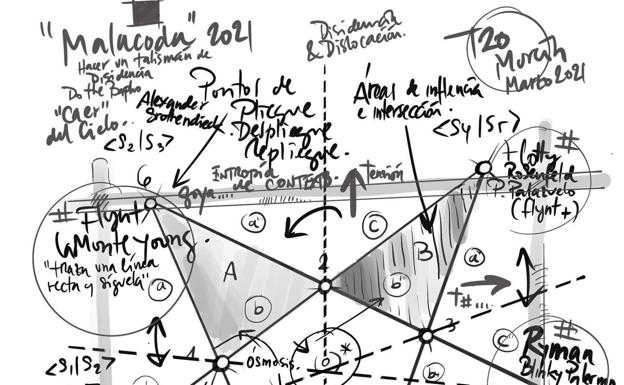 "Malacoda" 2021
Hacer un talismán de
Disidencia
Do the Bapho
"Caer"
del Cielo...
Disidencia
& Dislocación.
T20
Morgih
Marzo 2021
Alexander
Grothendieck
Puntos de
Pliegue
Despliegue
Repliegue.
Áreas de influencia
e intersección.
<S2|S3>
<S4|S1>
6
Goya....
Entropía
de CONTEXTO.
tensión
#
Flynt
LaMonte Young.
"traza una línea
recta y síguela"
#
Lotty
Rosenfeld
(flynt+)
a
a'
c
A
B
b
b'
a'
1
3
T#....
c'
#
Ryman
Blinky Palermo
<S1|S2>
osmosis
*
b'